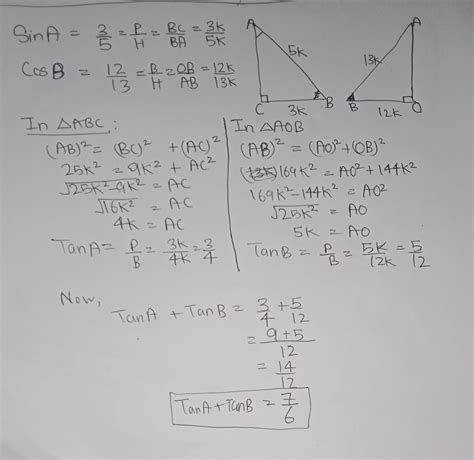 SinA = 3/5 = P/H = BC/BA = 3K/5K
CosB = 12/13 = B/H = OB/AB = 12K/13K
A
5K
C
3K
B
A
13K
B
12K
O
In △ABC :
(AB)² = (BC)² + (AC)²
25K² = 9K² + AC²
√25K²-9K² = AC
√16K² = AC
4K = AC
TanA = P/B = 3K/4K = 3/4
In △AOB
(AB)² = (AO)² + (OB)²
169K² = AO² + 144K²
169K² - 144K² = AO²
√25K² = AO
5K = AO
TanB = P/B = 5K/12K = 5/12
Now,
TanA + TanB = 3/4 + 5/12
= 9+5/12
= 14/12
TanA + TanB = 7/6